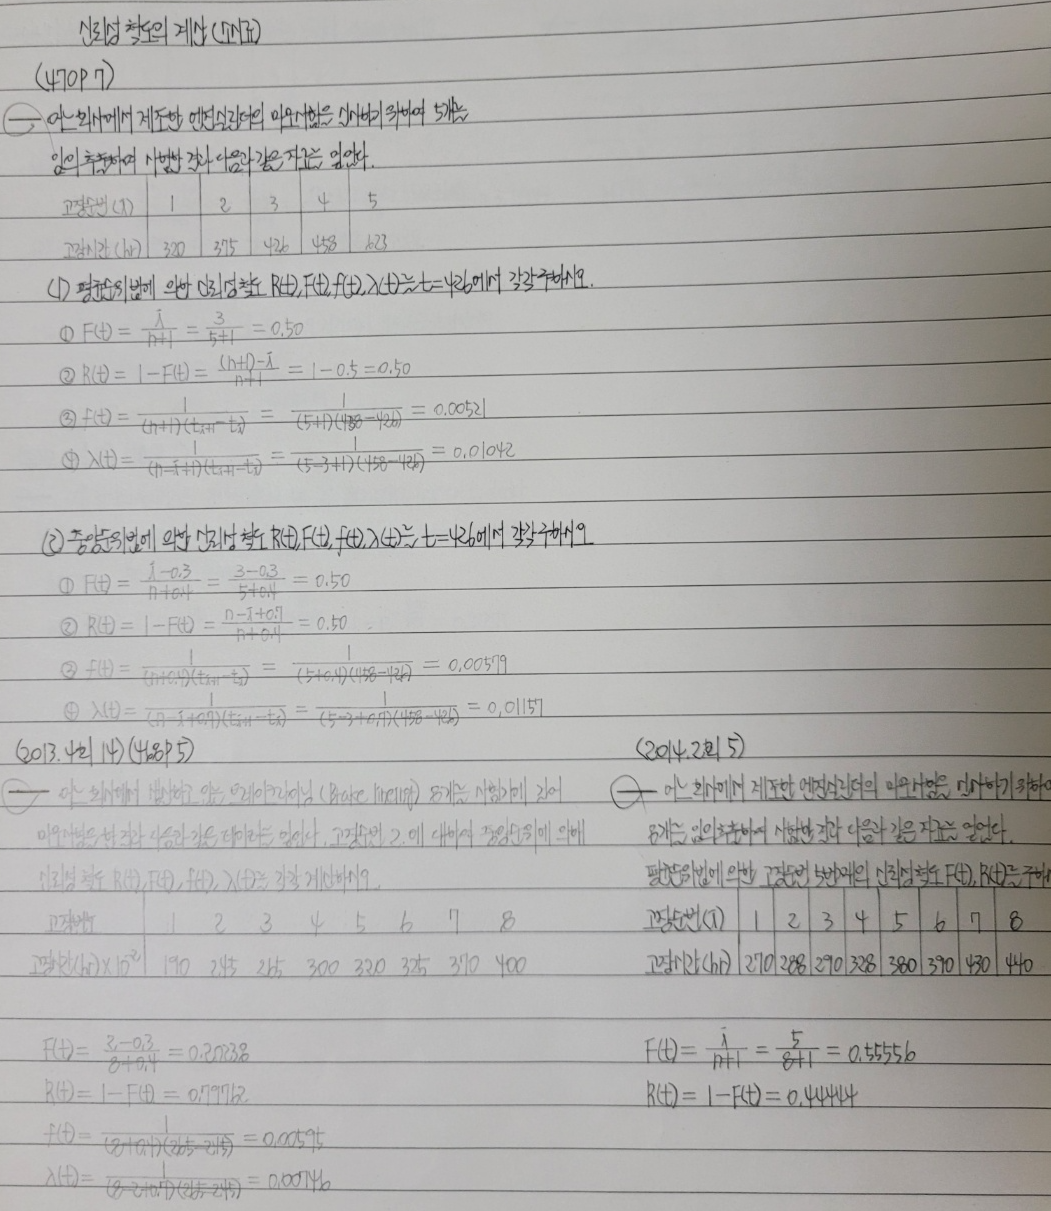 신뢰성 척도의 계산 (소시료)
(470P 7)
어느 회사에서 제조한 엔진실린더의 마모시험을 실시하기 위하여 5개를
임의 추출하여 시험한 결과 다음과 같은 자료를 얻었다.
고장순번(i) 1 2 3 4 5
고장시간(hr) 320 375 426 458 623
(1) 평균순위법에 의한 신뢰성 척도 R(t), F(t), f(t), λ(t)를 t=426에서 각각 구하시오.
① F(t) = i/(n+1) = 3/(5+1) = 0.50
② R(t) = 1-F(t) = ((n+1)-i)/(n+1) = 1-0.5 = 0.50
③ f(t) = 1/((n+1)(ti+1-ti)) = 1/((5+1)(458-426)) = 0.00521
④ λ(t) = 1/((n-i+1)(ti+1-ti)) = 1/((5-3+1)(458-426)) = 0.01042
(2) 중앙순위법에 의한 신뢰성 척도 R(t), F(t), f(t), λ(t)를 t=426에서 각각 구하시오
① F(t) = (i-0.3)/(n+0.4) = (3-0.3)/(5+0.4) = 0.50
② R(t) = 1-F(t) = (n-i+0.7)/(n+0.4) = 0.50
③ f(t) = 1/((n+0.4)(ti+1-ti)) = 1/((5+0.4)(458-426)) = 0.00579
④ λ(t) = 1/((n-i+0.7)(ti+1-ti)) = 1/((5-3+0.7)(458-426)) = 0.01157
(2013.4회 14)(468P 5)
어느 회사에서 생산하고 있는 브레이크라이닝 (Brake lineing) 8개를 시험기에 걸어
마모시험을 한 결과 다음과 같은 데이터를 얻었다. 고장순번 2.에 대하여 중앙순위에 의해
신뢰성 척도 R(t), F(t), f(t), λ(t)를 각각 계산하시오.
고장번호 1 2 3 4 5 6 7 8
고장시간(hr)×10² 190 245 265 300 320 325 370 400
F(t) = (2-0.3)/(8+0.4) = 0.20238
R(t) = 1-F(t) = 0.79762
f(t) = 1/((8+0.4)(265-245)) = 0.00595
λ(t) = 1/((8-2+0.7)(265-245)) = 0.00746
(2014.2회 5)
어느 회사에서 제조한 엔진실린더의 마모시험을 실시하기 위하여
8개를 임의추출하여 시험한 결과 다음과 같은 자료를 얻었다.
평균순위법에 의한 고장순번 5번째의 신뢰성 척도 F(t), R(t)를 구하
고장순번(i) 1 2 3 4 5 6 7 8
고장시간(hr) 270 288 290 328 380 390 430 440
F(t) = i/(n+1) = 5/(8+1) = 0.55556
R(t) = 1-F(t) = 0.44444